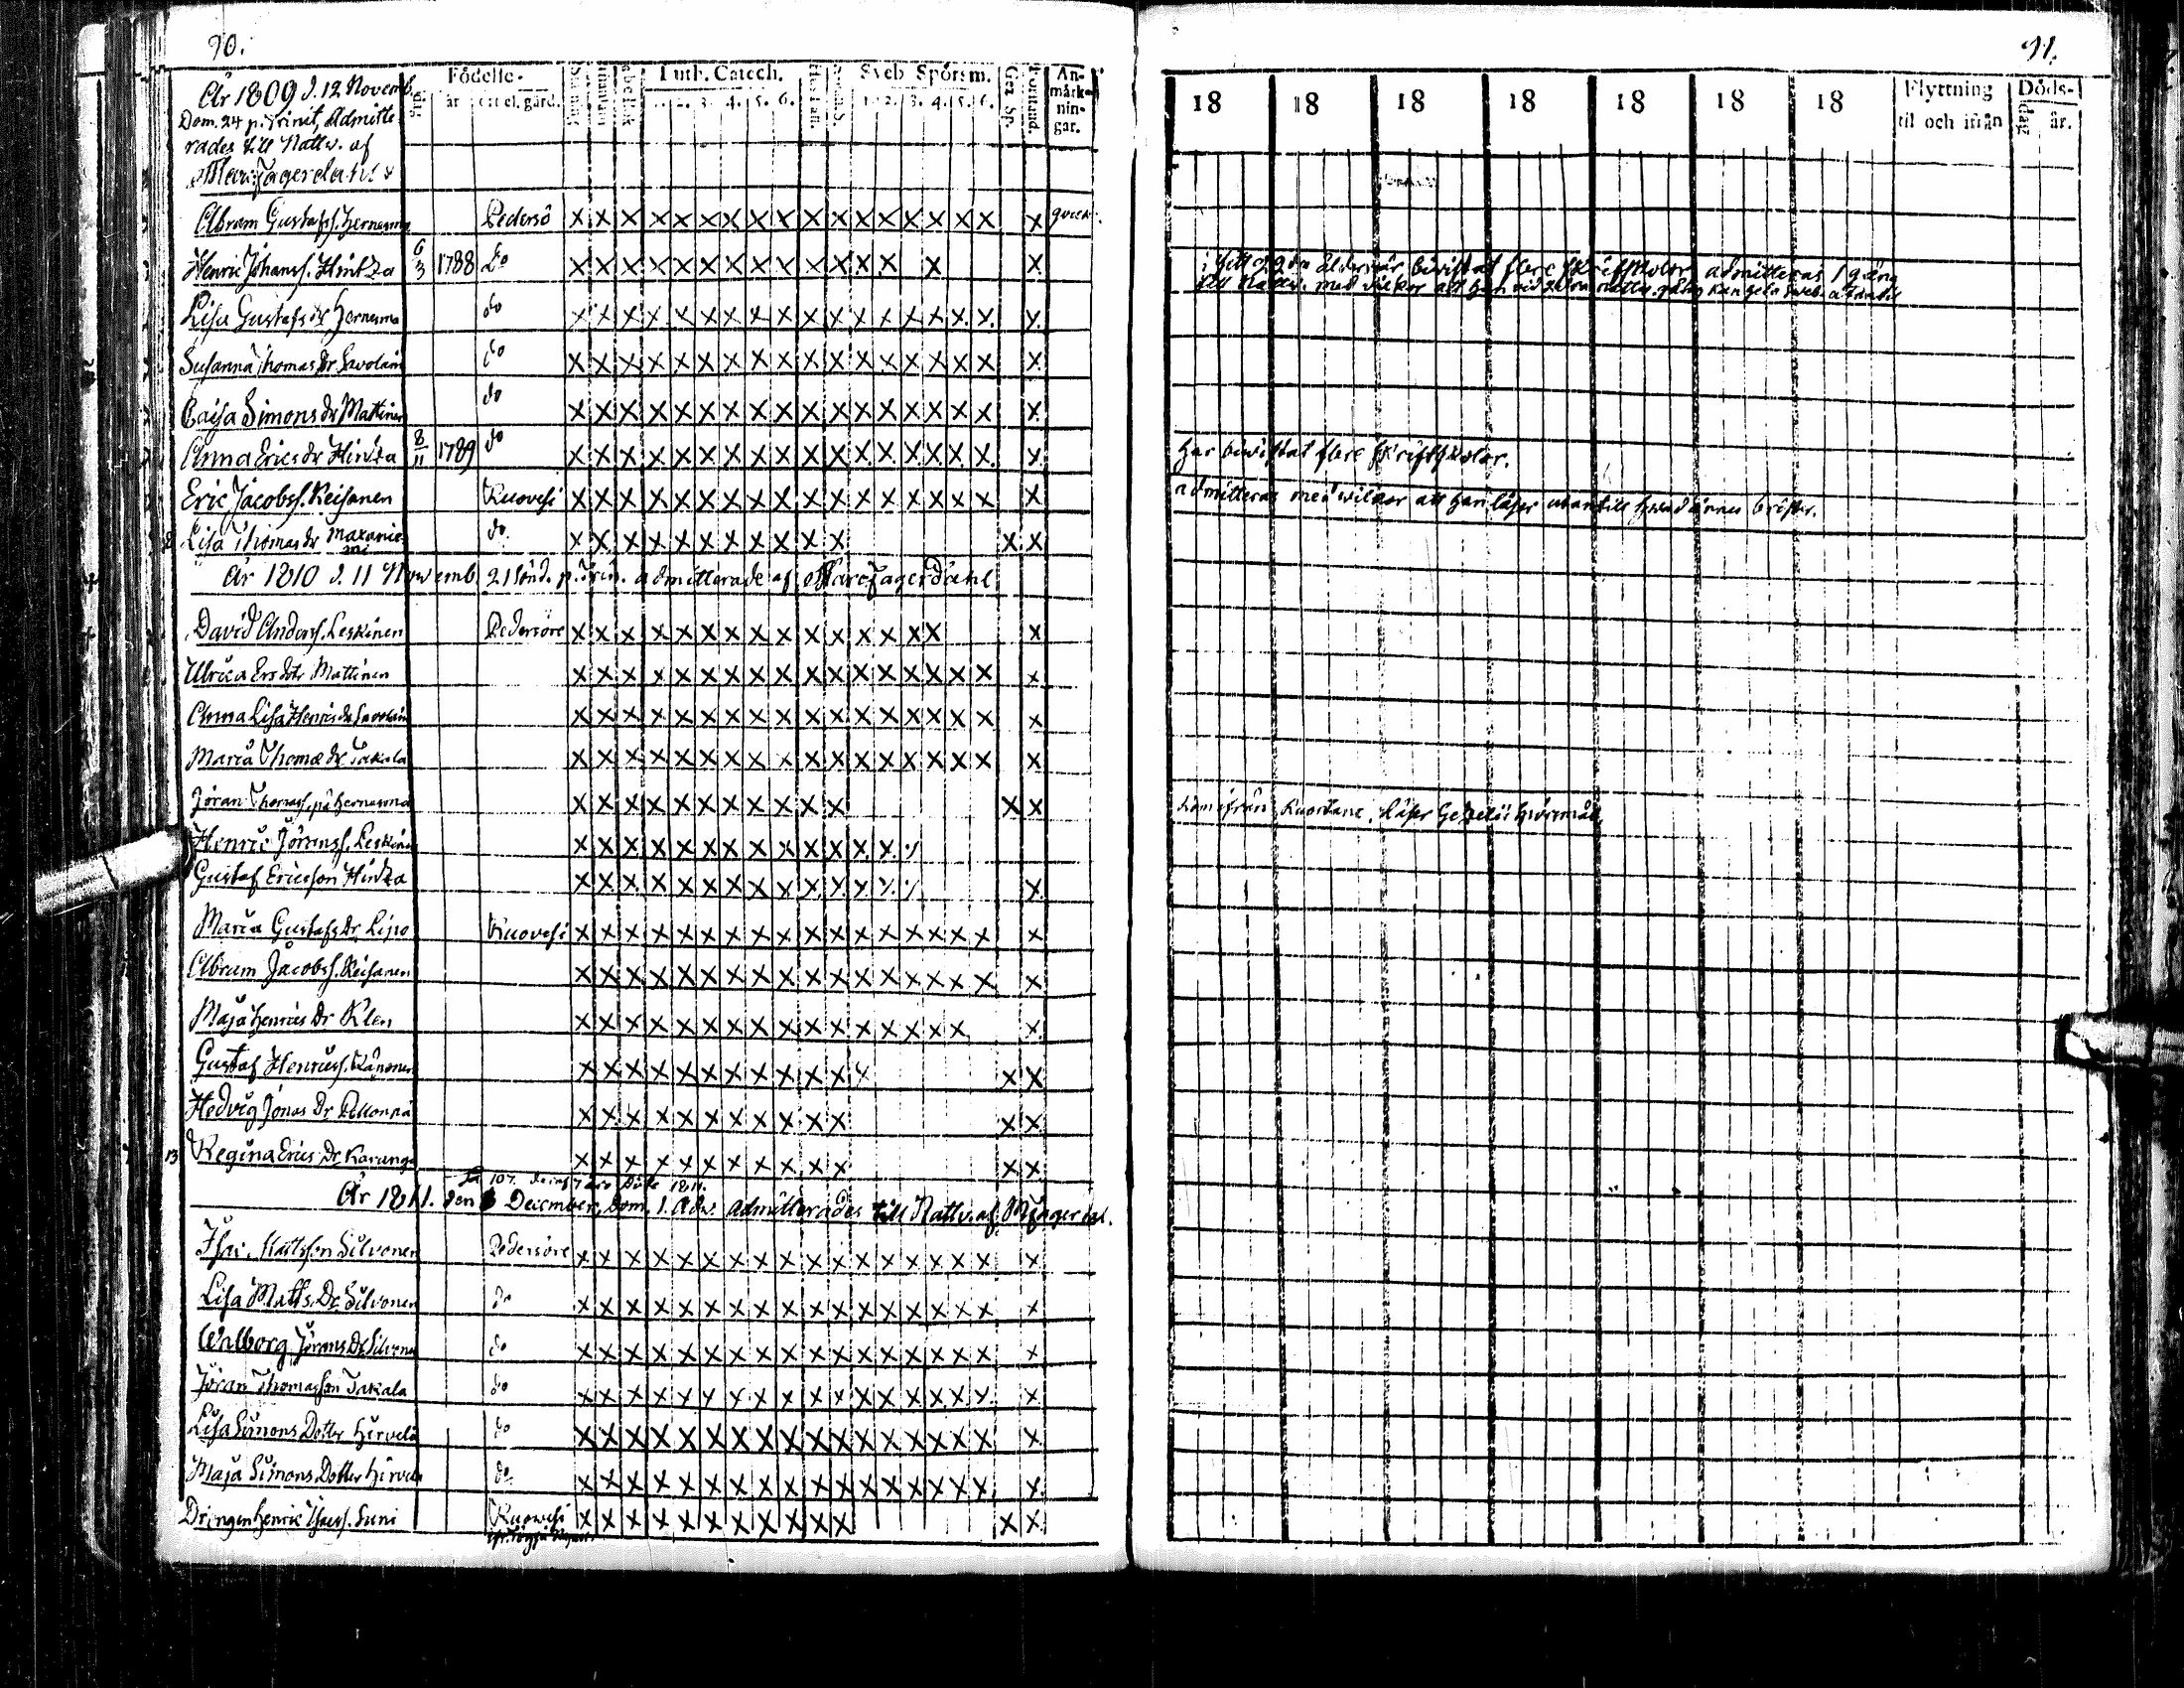 90.
91.
Födelse-
Luth. Catech.
Sveb Spörsm.
An-
märk-
nin-
gar.
år ort el. gård.
1. 2. 3. 4. 5. 6.
1. 2. 3. 4. 5. 6.
18 18 18 18 18 18 18
Flyttning
til och ifrån
Döds-
dag år.
År 1809 d. 12 Novemb.
Dom. 24 p. Trinit, Admitte
rades till Nattv. af
Marc Jagerdahl
Abram Gustafss. Hernesma Pedersö x x x x x x x x x x x x x x x x x x
Henric Johanss. Hintza 6/3 1788 do x x x x x x x x x x x x x x x
i sitt 22dra åldersår bivistat flere skriftskolor admitteras 1 gång
till Nattv. med vilkor att han vid
Lisa Gustafs dr Hernesma do x x x x x x x x x x x x x x x x x x
Susanna Thomas dr Savolain do x x x x x x x x x x x x x x x x x x
Caisa Simons dr Mattinen do x x x x x x x x x x x x x x x x x x
Anna Erics dr Hintza 8/11 1789 do x x x x x x x x x x x x x x x x x x
har bivistat flere skriftskolor.
Eric Jacobss. Reisanen Ruovesi x x x x x x x x x x x x x x x x x x
admitteras med wilkor att han läser utantill hvad ännu brister.
Lisa Thomas dr Maxanie
mi do. x x x x x x x x x x x x x
År 1810 d. 11 Novemb. 21 Sönd. p. Trin. admitterade af Marc Jagerdahl
David Anderss. Leskinen Pedersöre x x x x x x x x x x x x x x x x
Ulrica Ers dotr Mattinen x x x x x x x x x x x x x x x x x x
Anna Lisa Henrics dr Savolain x x x x x x x x x x x x x x x x x x
Maria Thomæ dr Takala x x x x x x x x x x x x x x x x x x
Jöran Thomass. på Hernesma x x x x x x x x x x x x x
kom ifrån Kuortane, läser Gezelii spörsmål
Henric Jörenss. Leskinen x x x x x x x x x x x x x x
Gustaf Ericsson Hintza x x x x x x x x x x x x x x x
Maria Gustafs Dr Lipo Ruovesi x x x x x x x x x x x x x x x x x x
Abram Jacobss. Reisanen x x x x x x x x x x x x x x x x x x
Maja Henrics Dr Klen x x x x x x x x x x x x x x x x x
Gustaf Henricss. x x x x x x x x x x x x x x
Hedvig Jonas Dr x x x x x x x x x x x x x
13 Regina Erics Dr Karanga x x x x x x x x x x x x x
År 1811. den December, Dom. 1. Adv. admitterades till Nattv. af M Jagerdal.
Isac Mattsson Silvonen Pedersöre x x x x x x x x x x x x x x x x x x
Lisa Matts Dr Silvonen do x x x x x x x x x x x x x x x x x x
Walborg Jörens Dr Silvonen do x x x x x x x x x x x x x x x x x x
Jöran Thomasson Takala do x x x x x x x x x x x x x x x x x x
Lisa Simons Dotter Hirvelä do x x x x x x x x x x x x x x x x x x
Maja Simons Dotter Hirvelä do x x x x x x x x x x x x x x x x x x
Drängen Henric Suni Ruowesi x x x x x x x x x x x x x